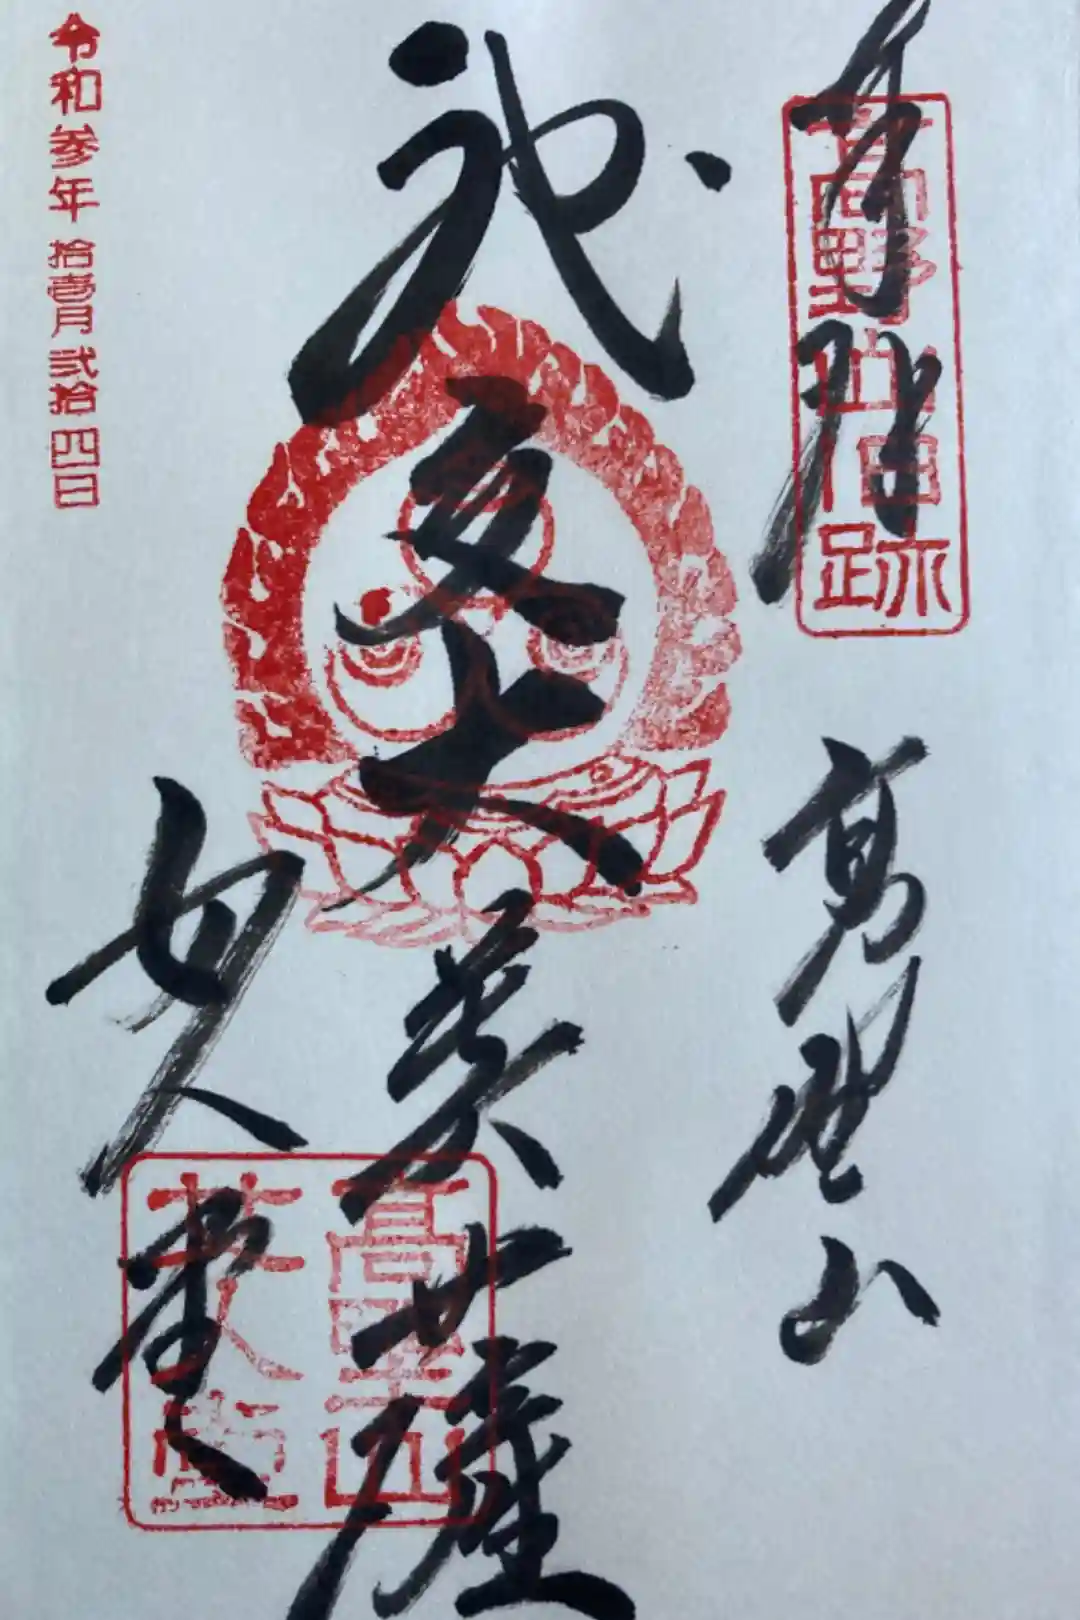 奉拝
高野山旧跡
高野山
神変大菩薩
女人堂
高野山
女人堂
令和参年拾壱月弐拾四日